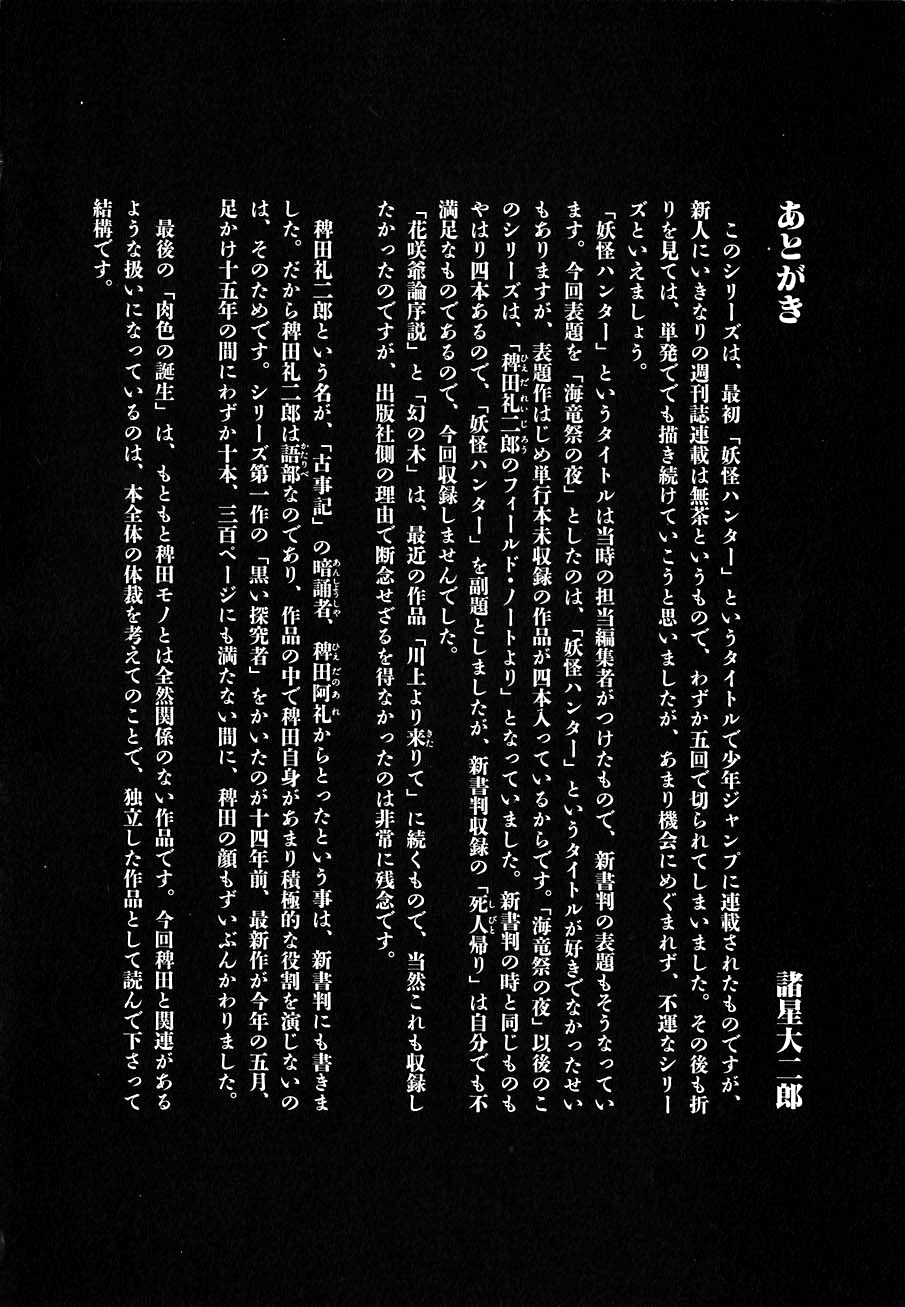 あとがき
諸星大二郎
このシリーズは、最初「妖怪ハンター」というタイトルで少年ジャンプに連載されたものですが、
新人にいきなりの週刊誌連載は無茶というもので、わずか五回で切られてしまいました。その後も折
りを見ては、単発ででも描き続けていこうと思いましたが、あまり機会にめぐまれず、不運なシリー
ズといえましょう。
「妖怪ハンター」というタイトルは当時の担当編集者がつけたもので、新書判の表題もそうなってい
ます。今回表題を「海竜祭の夜」としたのは、「妖怪ハンター」というタイトルが好きでなかったせい
もありますが、表題作はじめ単行本未収録の作品が四本入っているからです。「海竜祭の夜」以後のこ
のシリーズは、「稗田礼二郎のフィールド・ノートより」となっていました。新書判の時と同じものも
やはり四本あるので、「妖怪ハンター」を副題としましたが、新書判収録の「死人帰り」は自分でも不
満足なものであるので、今回収録しませんでした。
「花咲爺論序説」と「幻の木」は、最近の作品「川上より来りて」に続くもので、当然これも収録し
たかったのですが、出版社側の理由で断念せざるを得なかったのは非常に残念です。
稗田礼二郎という名が、「古事記」の暗誦者、稗田阿礼からとったという事は、新書判にも書きま
した。だから稗田礼二郎は語部なのであり、作品の中で稗田自身があまり積極的な役割を演じないの
は、そのためです。シリーズ第一作の「黒い探究者」をかいたのが十四年前、最新作が今年の五月、
足かけ十五年の間にわずか十本、三百ページにも満たない間に、稗田の顔もずいぶんかわりました。
最後の「肉色の誕生」は、もともと稗田モノとは全然関係のない作品です。今回稗田と関連がある
ような扱いになっているのは、本全体の体裁を考えてのことで、独立した作品として読んで下さって
結構です。